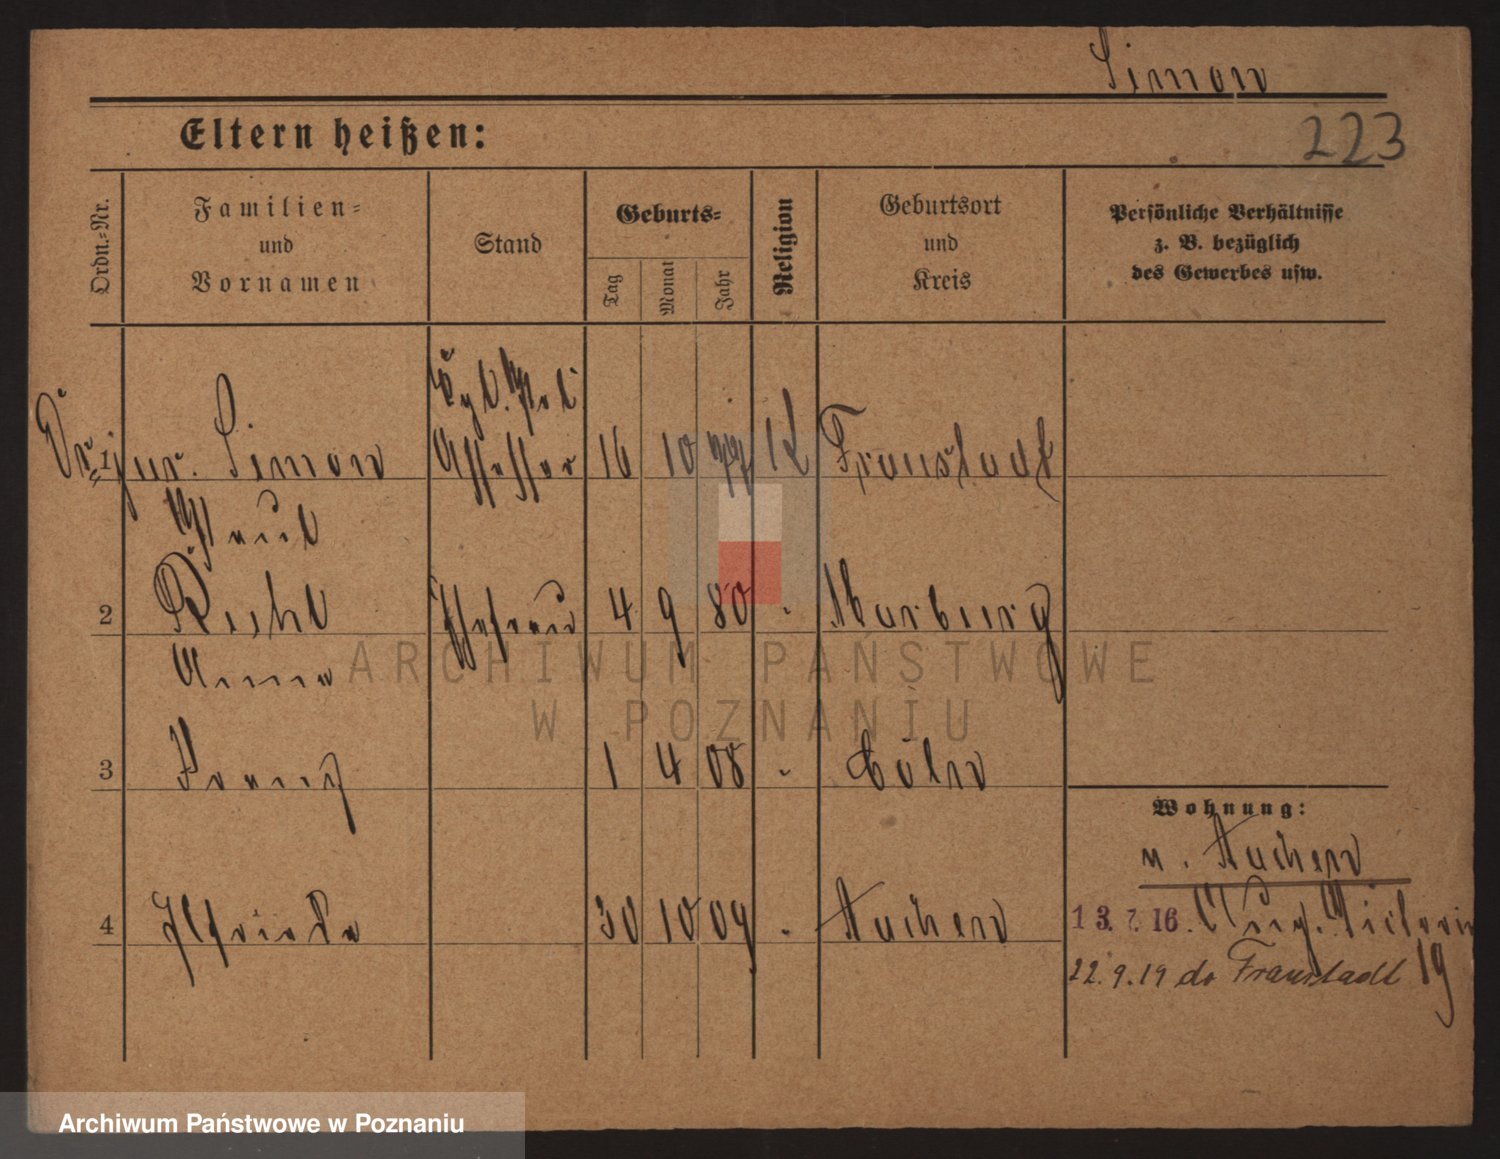 Simon
Eltern heißen:
223
Ordn.-Nr.
Familien-
und
Vornamen
Stand
Geburts-
Tag
Monat
Jahr
Religion
Geburtsort
und
Kreis
Persönliche Verhältnisse
z. B. bezüglich
des Gewerbes usw.
Kgl. Pol.
1 Dr. jur. Simon Assessor 16 10 77 K Fraustadt
Paul
2 Ehefrau 4 9 80 Marburg
Anna
3 Franz 1 4 08 Cöln
Wohnung:
n. Aachen
4 30 10 09 Aachen
13.7.16. Aug. Victoria
19
22.9.19 do Fraustadt
ARCHIWUM PAŃSTWOWE
W POZNANIU
Archiwum Państwowe w Poznaniu